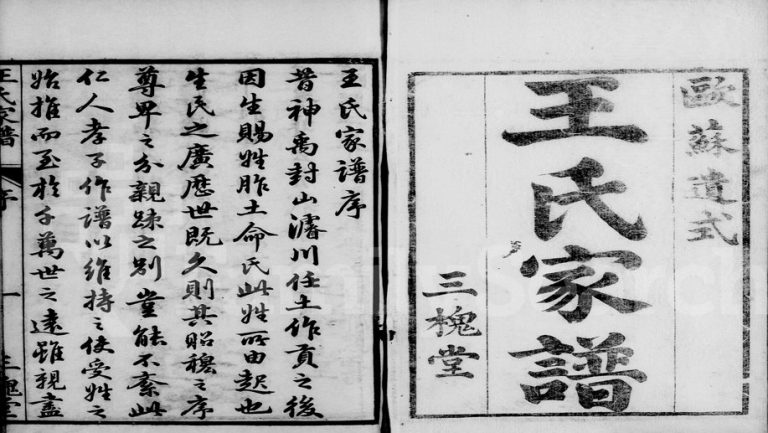 歐蘇遺式
王氏家譜
三槐堂
王氏家譜序
昔神禹封山濬川任土作貢之後
因生賜姓胙土命氏此姓所由起也
生民之廣歷世既久則其昭穆之序
尊卑之分親踈之別豈能不紊此
仁人孝子作譜以維持之使受姓之
始推而至於千萬世之遠雖親盡
王氏家譜
序
一
三槐堂